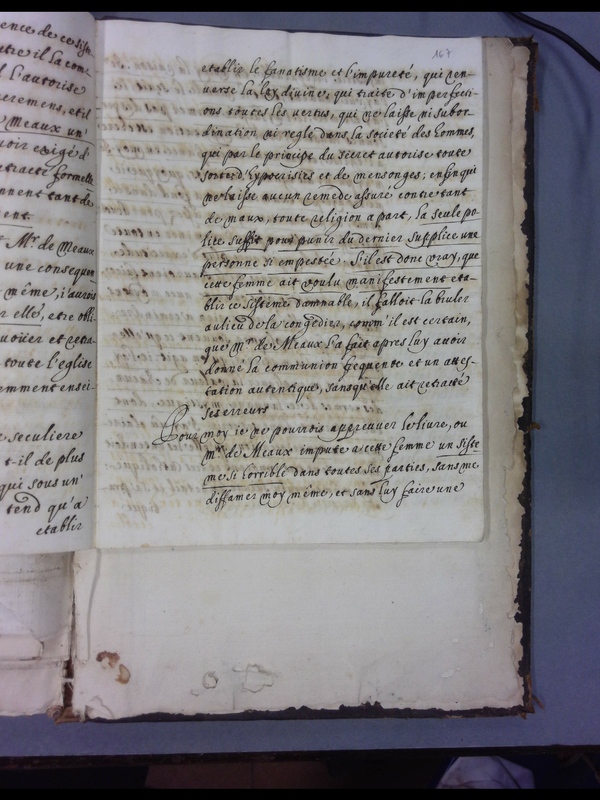 ence de ce siste
utre il la com-
l'autorise
erremens, et il
Meaux un'
voir exigé d'
etracté formelle
nnent tant de
ent.
Mr. de Meaux
une consequen
même, i'aurois
r elle, etre obli
vouer et retra
toute l'eglise
emment ensei-
seculiere
t-il de plus
qui sous un'
tend qu'a
etablir
167
etablir le fanatisme et l'impureté, qui ren-
verse la loy divine, qui traite d'imperfecti-
ons toutes les vertus, qui ne laisse ni subor-
dination ni regle dans la societé des hommes,
qui par le principe du secret autorise toute
sorte d'hypocrisies et de mensonges; enfin qui
ne laisse aucun remede assuré contre tant
de maux, toute religion a part, la seule po-
lice suffit pour punir du dernier supplice une
personne si empestée. S'il est donc vray, que
cette femme ait voulu manifestement eta-
blir ce sistême damnable, il falloit la bruler
au lieu de la congedier, comm'il est certain,
que Mr. de Meaux l'a fait apres luy avoir
donné la communion frequente et un attes-
tation autentique, sans qu'elle ait retracté
ses erreurs
Pour moy ie ne pourrois approuver le livre, ou
Mr. de Meaux impute a cette femme un siste
me si horrible dans toutes ses parties, sans me
diffamer moy même, et sans luy faire une